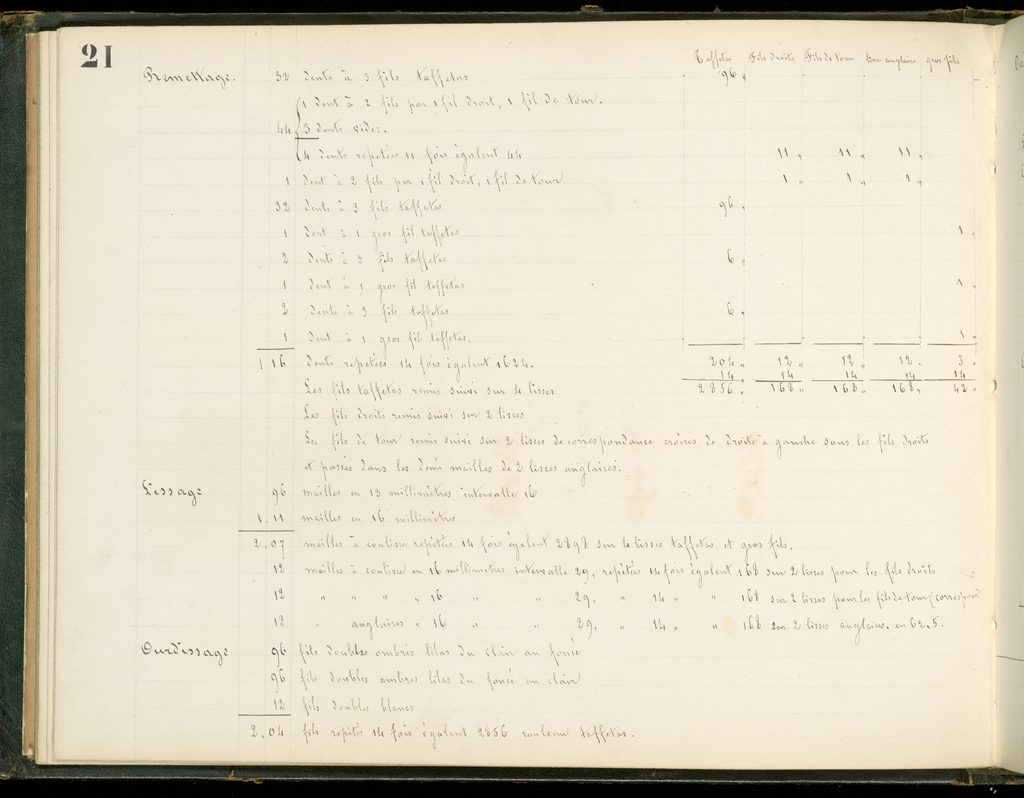 21
Taffetas Fils droits Fils de tour Eau anglaise gros fils
Remettage. 32 dents à 3 fils taffetas 96 "
1 dent à 2 fils par 1 fil droit, 1 fil de tour.
44 3 dents vides.
4 dents repetées 11 fois égalent 44 11 " 11 " 11 "
1 dent à 2 fils par 1 fil droit, 1 fil de tour 1 " 1 " 1 "
32 dents à 3 fils taffetas 96 "
1 dent à 1 gros fil taffetas 1 "
2 dents à 3 fils taffetas 6 "
1 dent à 1 gros fil taffetas 1 "
2 dents à 3 fils taffetas 6 "
1 dent à 1 gros fil taffetas. 1 "
116 dents repetées 14 fois égalent 1624. 204 " 12 " 12 " 12 " 3 "
14 14 14 14 14
Les fils taffetas remis suivi sur 4 lisses 2856 " 168 " 168 " 168 " 42 "
Les fils droits remis suivi sur 2 lisses
Les fils de tour remis suivi sur 2 lisses de correspondance croisés de droite à gauche sous les fils droits
et passés dans les demi mailles de 2 lisses anglaises.
Lissage 96 mailles en 13 millimètres intervalle 16
1,11 mailles en 16 millimètres
2,07 mailles à coulisse repetées 14 fois égalent 2898 sur 4 lisses taffetas et gros fils.
12 mailles à coulisse en 16 millimetres intervalle 29, repetées 14 fois égalent 168 sur 2 lisses pour les fils droits
12 " " " " 16 " " 29, " 14 " " 168 sur 2 lisses pour les fils de tour (correspond
12 " anglaises " 16 " " 29, " 14 " " 168 sur 2 lisses anglaises. en 62.5.
Ourdissage 96 fils doubles ombrés lilas du clair au foncé
96 fils doubles ombres lilas du foncé au clair
12 fils doubles blancs
2,04 fils repétés 14 fois égalent 2856 rouleau taffetas.